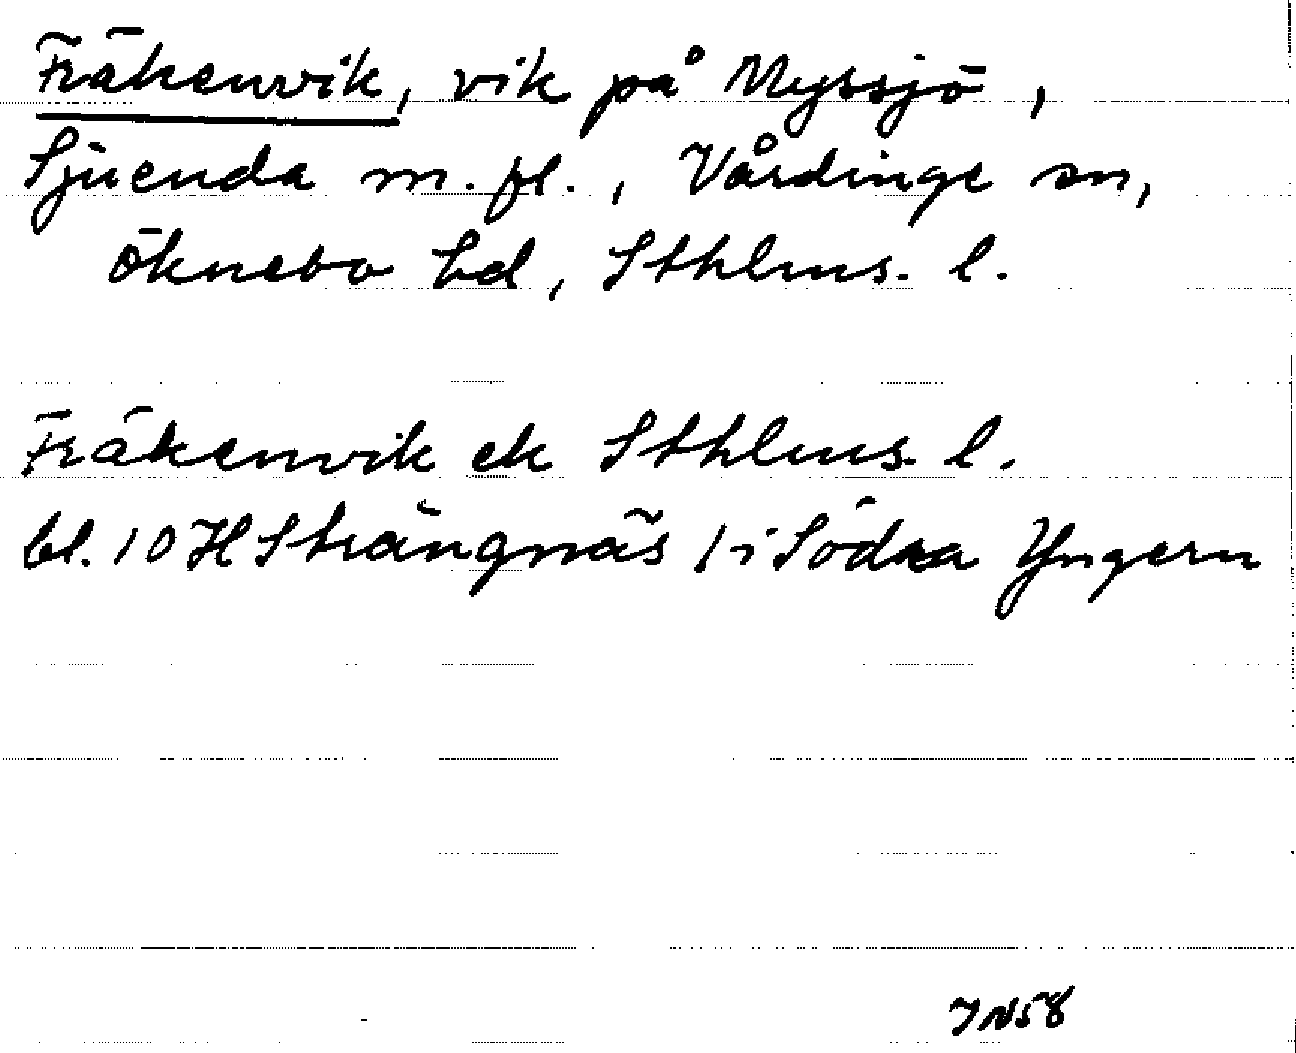 Fräkenvik, vik på Myssjö,
Sjuenda m.fl., Vårdinge sn,
Öknebo hd, Sthlms. l.
Fräkenvik ek Sthlms. l.
bl. 10 H Strängnäs 1 i Södra Yngern
JN58